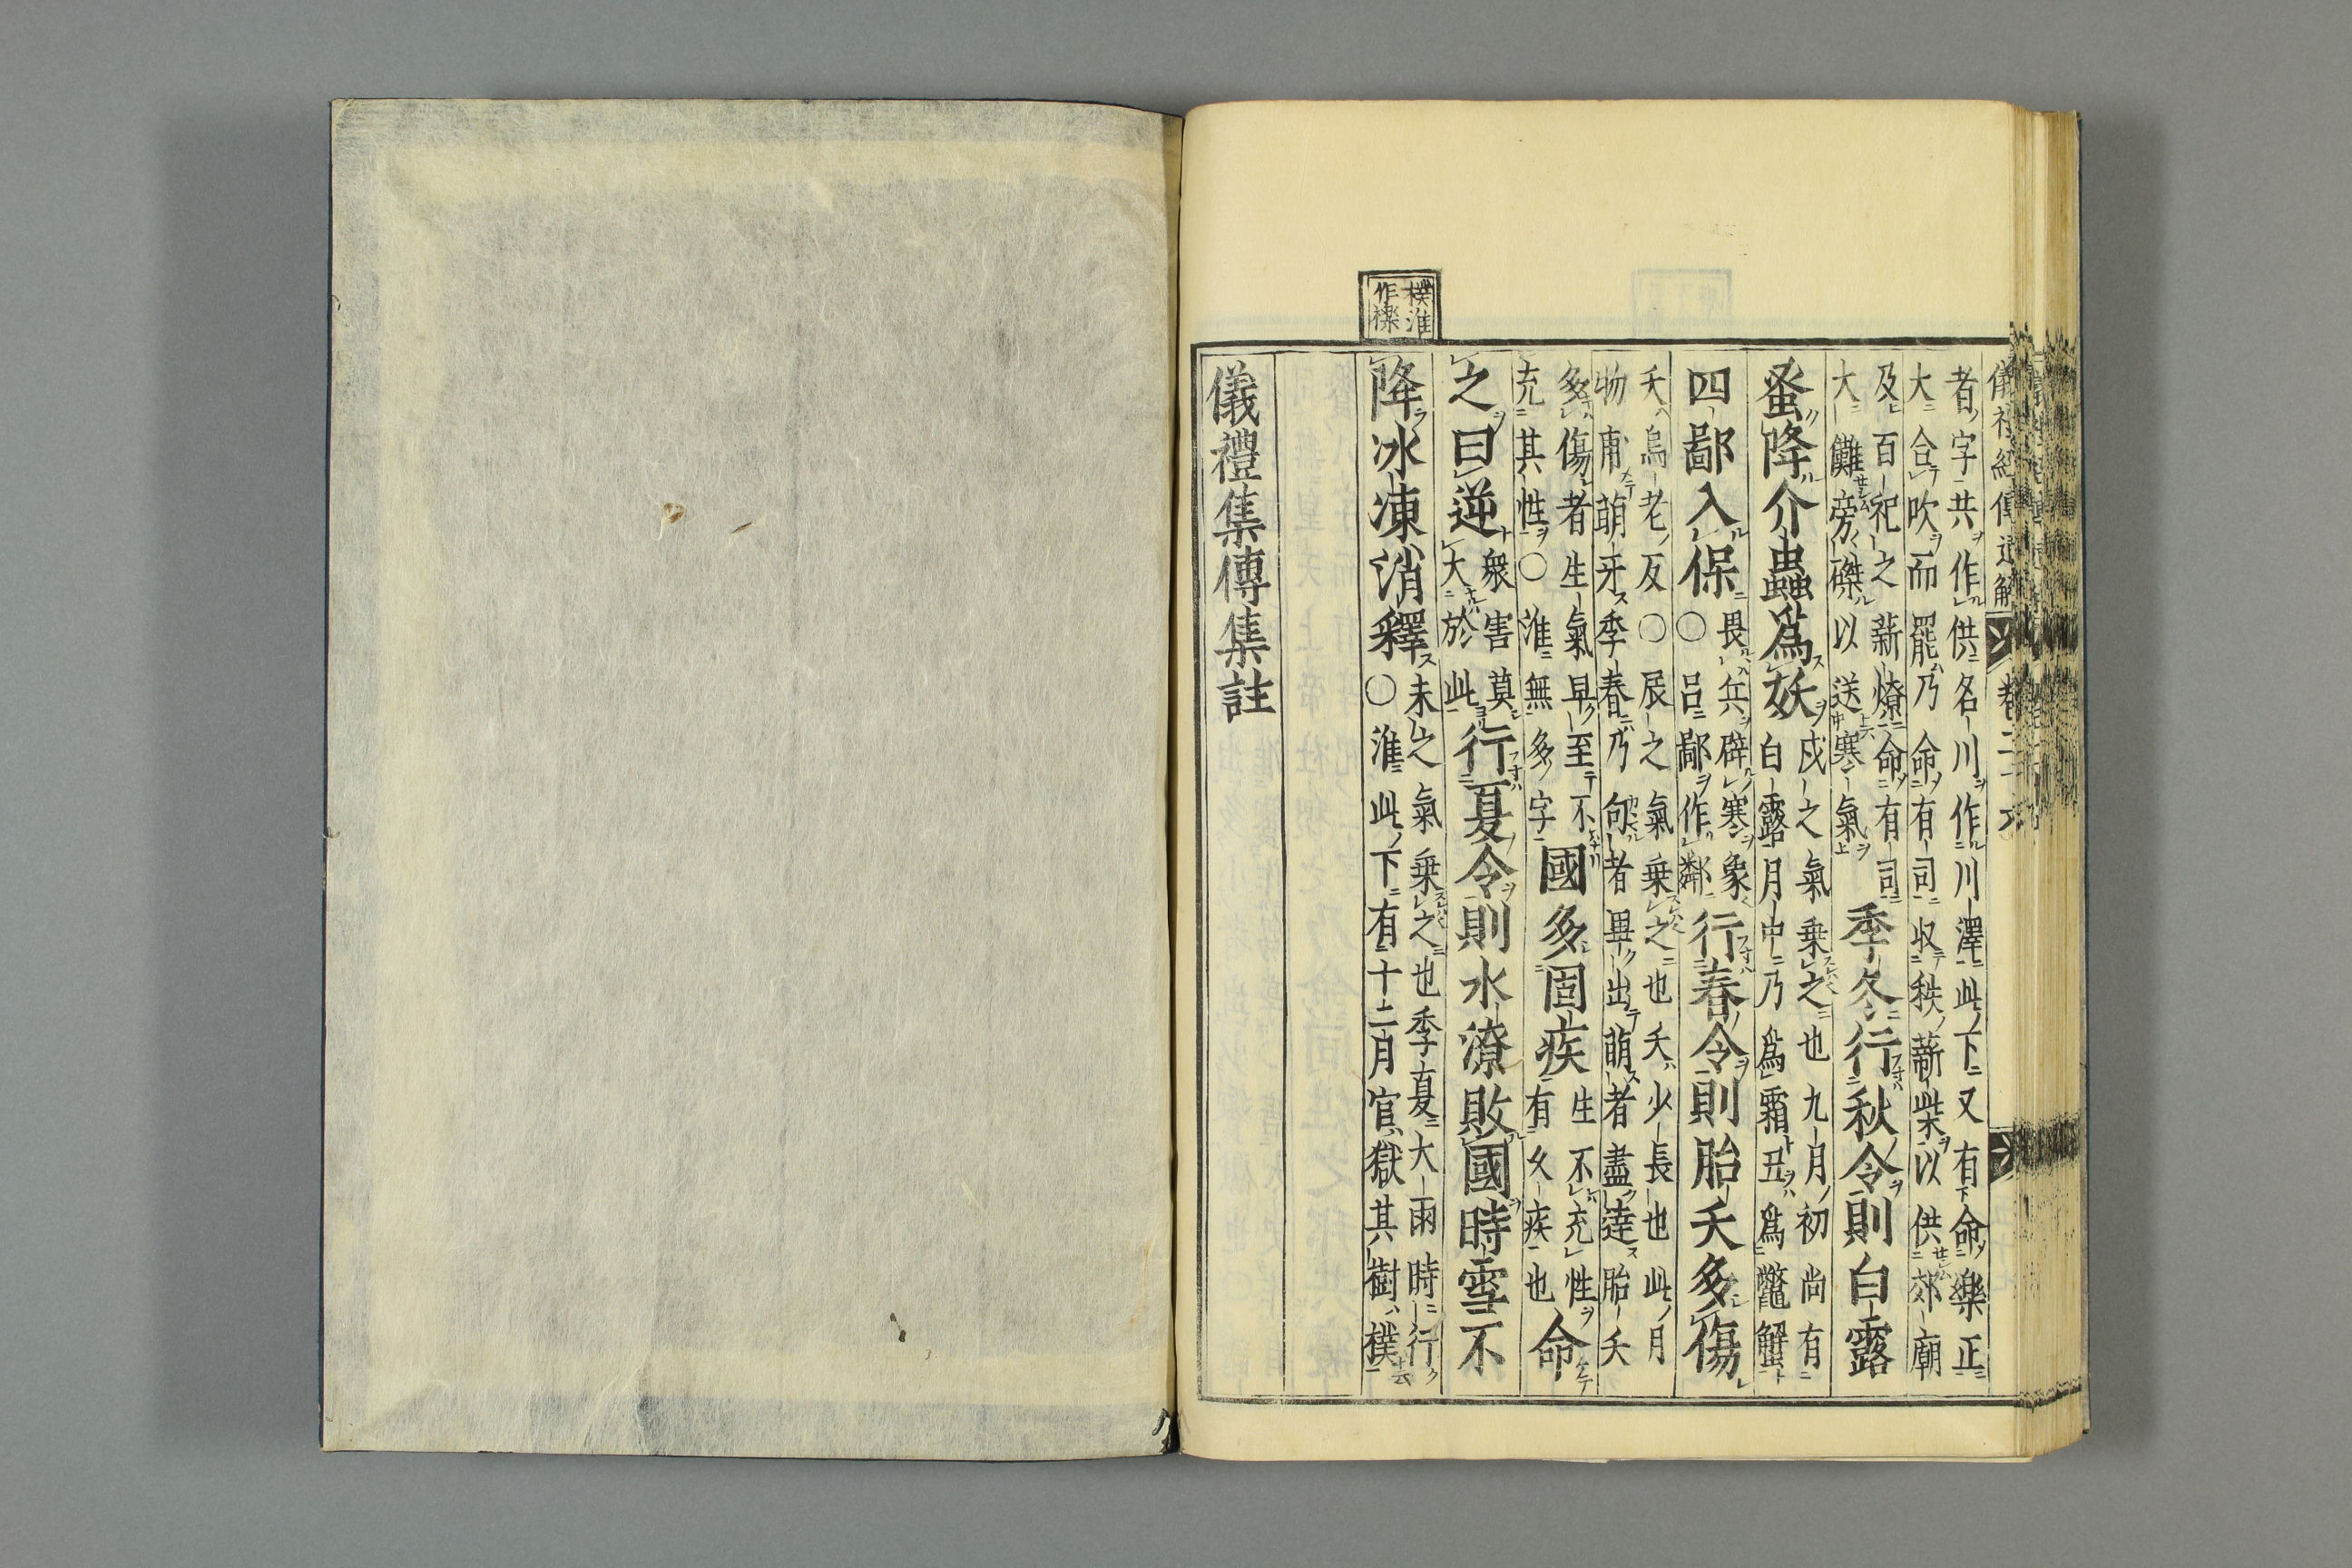 樸淮
作檪
儀禮經傳通解 卷二十六
者字共作供名川作川澤此下又有命樂正
大合吹而罷乃命有司収秩薪柴以供郊廟
及百祀之薪燎命有司
大儺旁磔以送寒氣
季冬行秋令則白露
蚤降介蟲爲妖
戌之氣乗之也九月初尚有
白露月中乃爲霜丑爲鼈蟹
四鄙入保
畏兵辟寒象
○呂鄙作鄰
行春令則胎夭多傷
夭烏老反○辰之氣乗之也夭少長也此月
物甫萌牙季春乃句者畢出萌者盡達胎夭
多傷者生氣早至不
充其性○淮無多字
國多固疾
生不充性
有久疾也
命
之曰逆
衆害莫
大於此
行夏令則水潦敗國時雪不
降冰凍消釋
未之氣乗之也季夏大雨時行
○淮此下有十二月官獄其樹樸
儀禮集傳集註